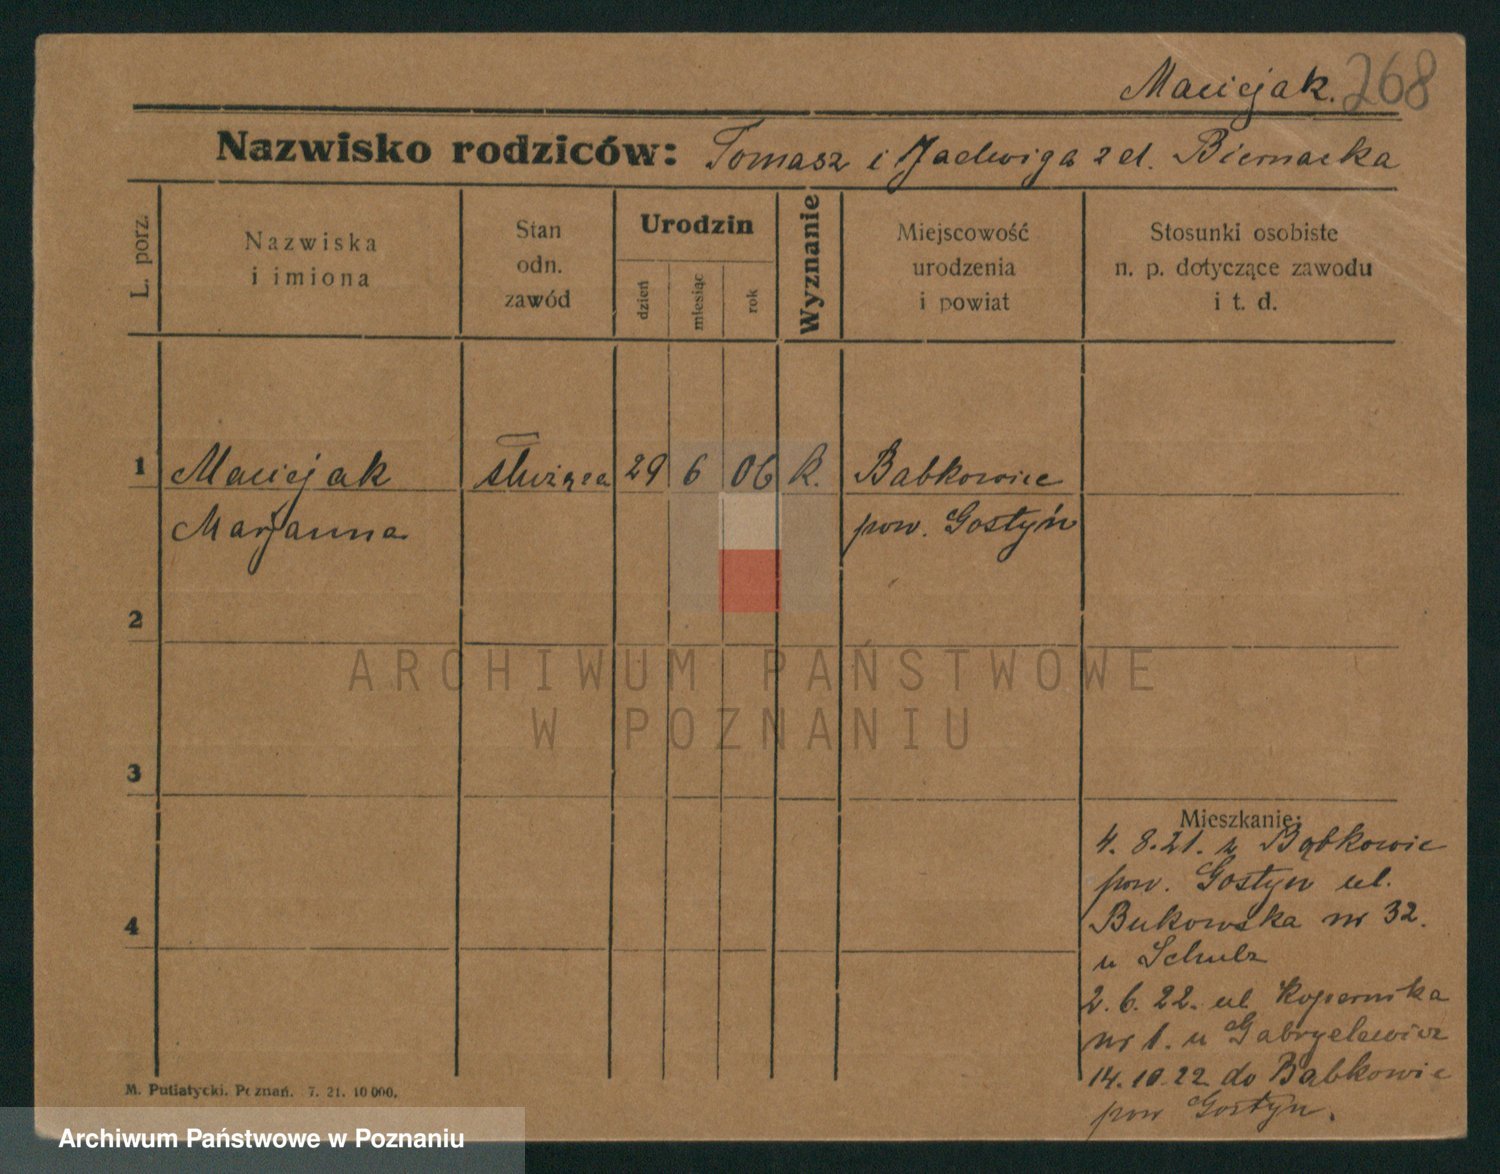 Maciejak. 268
Nazwisko rodziców: Tomasz i Jadwiga z d. Biernacka
L. porz.
Nazwiska
i imiona
Stan
odn.
zawód
Urodzin
dzień
miesiąc
rok
Wyznanie
Miejscowość
urodzenia
i powiat
Stosunki osobiste
n. p. dotyczące zawodu
i t. d.
1 Maciejak służąca 29 6 06 k. Babkowice
Marjanna pow. Gostyń
2
3
4
ARCHIWUM PAŃSTWOWE
W POZNANIU
Mieszkanie:
4. 8. 21. z Bąbkowic
pow. Gostyn ul.
Bukowska nr 32.
u Schulz
2. 6. 22. ul Kopernika
nr 1. u Gabryelewicz
14. 10. 22 do Bąbkowic
pow Gostyn.
M. Putiatycki. Poznań. 7. 21. 10 000.
Archiwum Państwowe w Poznaniu